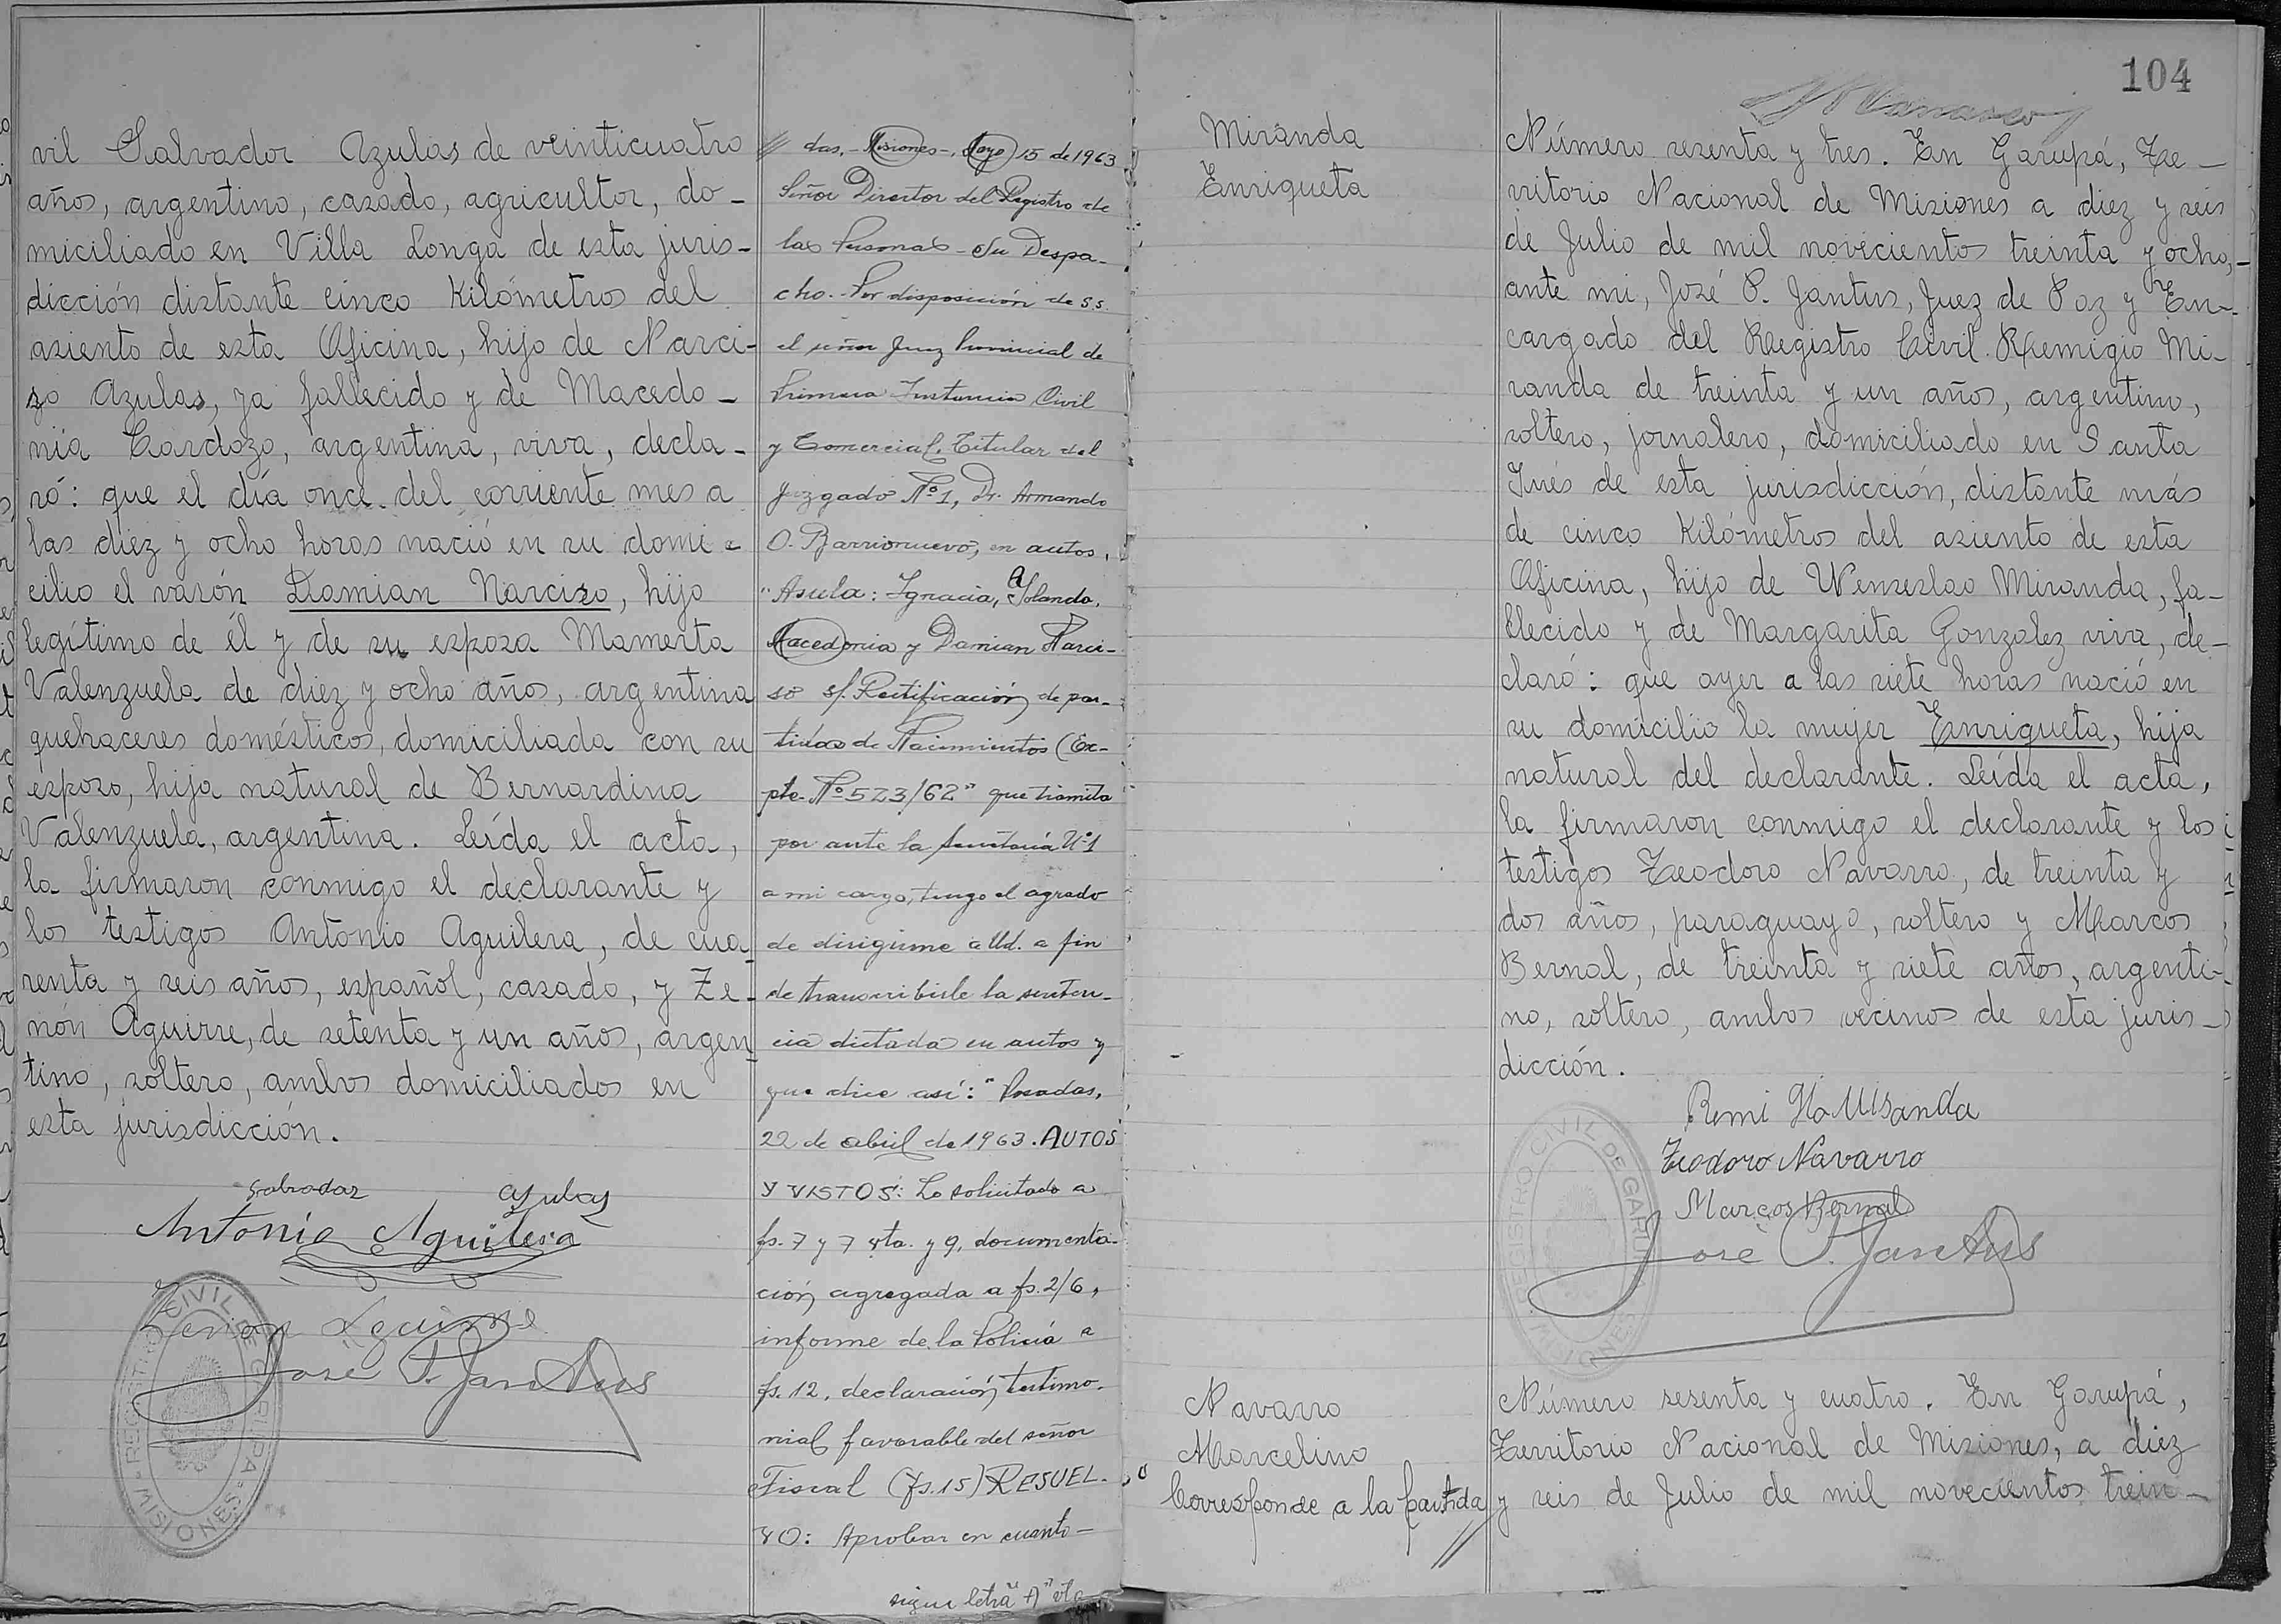 vil Salvador Azulas de veinticuatro
años, argentino, casado, agricultor, do-
miciliado en Villa Longa de esta juris-
dicción distante cinco Kilómetros del
asiento de esta Oficina, hijo de Narci-
so Azulas, ya fallecido y de Macedo-
nia Cardozo, argentina, viva, decla-
ró: que el día once del corriente mes a
las diez y ocho horas nació en su domi-
cilio el varón Damian Narciso, hijo
legítimo de él y de su esposa Mamerta
Valenzuela de diez y ocho años, argentina
quehaceres domésticos, domiciliada con su
esposo, hija natural de Bernardina
Valenzuela, argentina. Leída el acta,
la firmaron conmigo el declarante y
los testigos Antonio Aguilera, de cua-
renta y seis años, español, casado, y Ze-
nón Aguirre, de setenta y un años, argen-
tino, soltero, ambos domiciliados en
esta jurisdicción.
Salvador Azulas
Antonio Aguilera
Zenon Aguirre
José P. Jantus
REGISTRO CIVIL DE GARUPA
MISIONES
// das, -Misiones-, Mayo 15 de 1963
Señor Director del Registro de
las Personas - Su Despa-
cho.- Por disposición de S.S.
el señor Juez Provincial de
Primera Instancia Civil
y Comercial, Titular del
Juzgado Nº 1, Dr. Armando
O. Barrionuevo, en autos,
"Asula: Ignacia, Yolanda,
Macedonia y Damian Narci-
so s/. Rectificación de par-
tidas de Nacimientos (Ex-
pte. Nº 523/62" que tramita
por ante la Secretaría Nº 1
a mi cargo, tengo el agrado
de dirigirme a Ud. a fin
de transcribirle la senten-
cia dictada en autos y
que dice así: "Posadas,
22 de abril de 1963. AUTOS
Y VISTOS: Lo solicitado a
fs. 7 y 7 vta. y 9, documenta-
ción agregada a fs. 2/6,
informe de la Policía a
fs. 12, declaración testimo-
nial favorable del señor
Fiscal (fs. 15) RESUEL-
VO: Aprobar en cuanto-
sigue letra "A" vta
104
Miranda
Enriqueta
Número sesenta y tres. En Garupá, Te-
rritorio Nacional de Misiones a diez y seis
de Julio de mil novecientos treinta y ocho,
ante mi, José P. Jantus, Juez de Paz y En-
cargado del Registro Civil. Remigio Mi-
randa de treinta y un años, argentino,
soltero, jornalero, domiciliado en Santa
Inés de esta jurisdicción, distante más
de cinco Kilómetros del asiento de esta
Oficina, hijo de Wenseslao Miranda, fa-
llecido y de Margarita Gonzalez viva, de-
claró: que ayer a las siete horas nació en
su domicilio la mujer Enriqueta, hija
natural del declarante. Leída el acta,
la firmaron conmigo el declarante y los
testigos Teodoro Navarro, de treinta y
dos años, paraguayo, soltero y Marcos
Bernal, de treinta y siete años, argenti-
no, soltero, ambos vecinos de esta juris-
dicción.
Teodoro Navarro
Marcos Bernal
José P. Jantus
REGISTRO CIVIL DE GARUPA
MISIONES
Navarro
Marcelino
Corresponde a la partida
//
Número sesenta y cuatro. En Garupá,
Territorio Nacional de Misiones, a diez
y seis de Julio de mil novecientos trein-